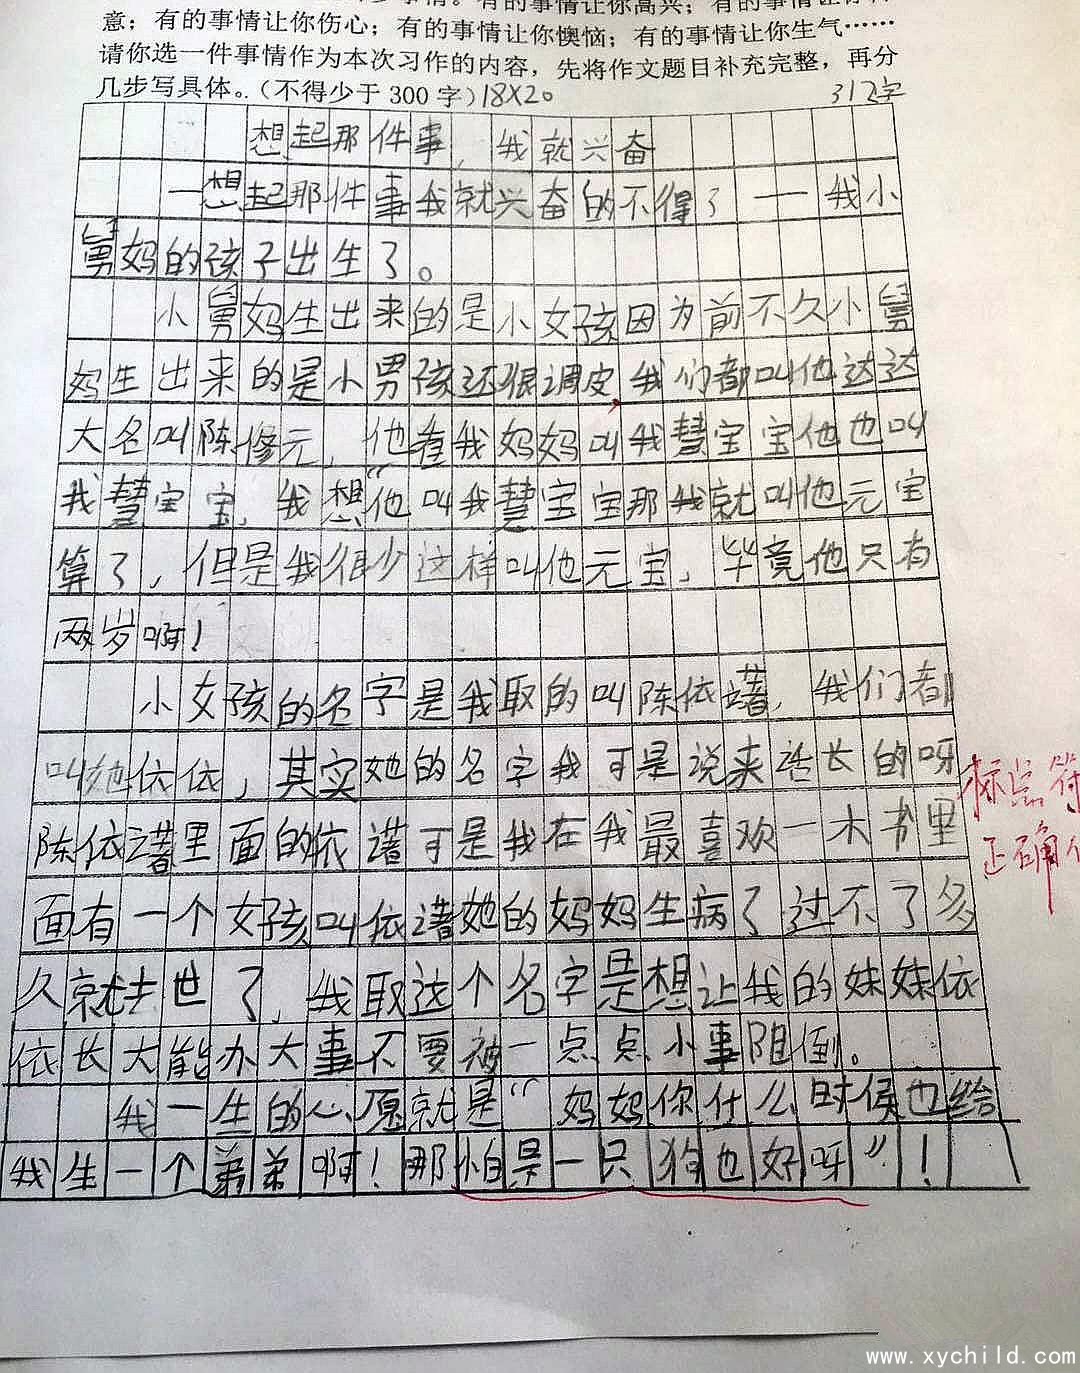 事情。有的事情让你高兴；有的事情让你
意；有的事情让你伤心；有的事情让你懊恼；有的事情让你生气……
请你选一件事情作为本次习作的内容，先将作文题目补充完整，再分
几步写具体。.（不得少于300字）18X20 312字
想起那件事，我就兴奋
一想起那件事我就兴奋的不得了——我小
舅妈的孩子出生了。
小舅妈生出来的是小女孩因为前不久小舅
妈生出来的是小男孩还狠调皮，我们都叫他达达
大名叫陈修元，他看我妈妈叫我慧宝宝他也叫
我慧宝宝，我想“他叫我慧宝宝那我就叫他元宝
算了，但是我很少这样叫他元宝，毕竟他只有
两岁啊！
小女孩的名字是我取的叫陈依诺，我们都
叫她依依，其实她的名字我可是说来话长的呀
陈依诺里面的依诺可是我在我最喜欢一本书里
面有一个女孩叫依诺她的妈妈生病了过不了多
久就去世了，我取这个名字是想让我的妹妹依
依长大能办大事不要被一点点小事阻倒。
我一生的心愿就是“妈妈你什么时候也给
我生一个弟弟啊！那怕是一只狗也好呀”！
标点符
正确
www.xychild.com